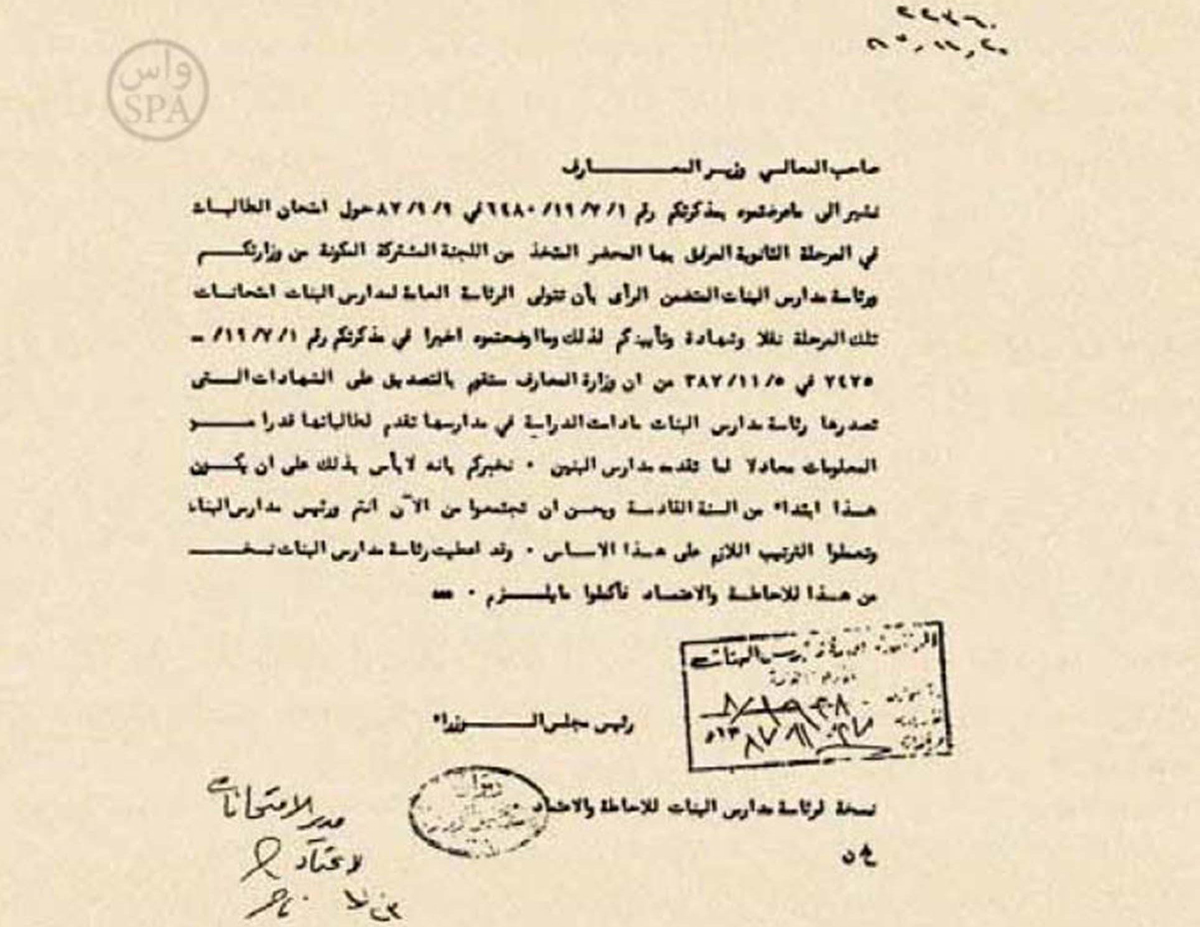 واس
SPA
٢٢٣٦٠
صاحب المعالي وزير المعارف
نشير الى ماعرضتموه بمذكرتكم رقم ١٩/٧/١/٦٤٨٠ في ٨٧/٩/٩ حول امتحان الطالبات
في المرحلة الثانوية المرفق بها المحضر المتخذ من اللجنة المشتركة المكونة من وزارتكم
ورئاسة مدارس البنات المتضمن الرأى بأن تتولى الرئاسة العامة لمدارس البنات امتحانات
تلك المرحلة نقلا وشهادة وتأييدكم لذلك وما اوضحتموه اخيرا في مذكرتكم رقم ١٩/٧/١/ ــ
٧٤٢٥ في ٣٨٧/١١/٥ من ان وزارة المعارف ستقوم بالتصديق على الشهادات التى
تصدرها رئاسة مدارس البنات مادامت الدراسة في مدارسها تقدم لطالباتها قدرا من
المعلومات معادلا لما تقدمه مدارس البنين ٠ نخبركم بانه لابأس بذلك على ان يكون
هذا ابتداء من السنة القادمة ويحسن ان تجتمعوا من الآن انتم ورئيس مدارس البنات
وتعملوا الترتيب اللازم على هذا الاساس ٠ وقد اعطيت رئاسة مدارس البنات نسخة
من هذا للاحاطة والاعتماد فأكملوا مايلزم ٠
مدارس البنات
رئيس مجلس الوزراء
ديوان
نسخة لرئاسة مدارس البنات للاحاطة والاعتماد
مدير الامتحانات
لاعتماد